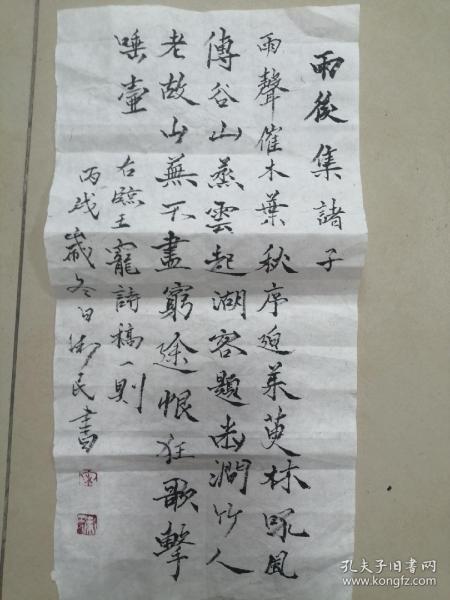 雨後集諸子
雨聲催木葉秋序迫茱萸林吼風
傳谷山蒸雲起湖容題幽澗竹人
老故山蕪不盡窮途恨狂歌擊
唾壷
右臨王寵詩稿一則
丙戌歲冬日民書
孔夫子旧书网
www.kongfz.com